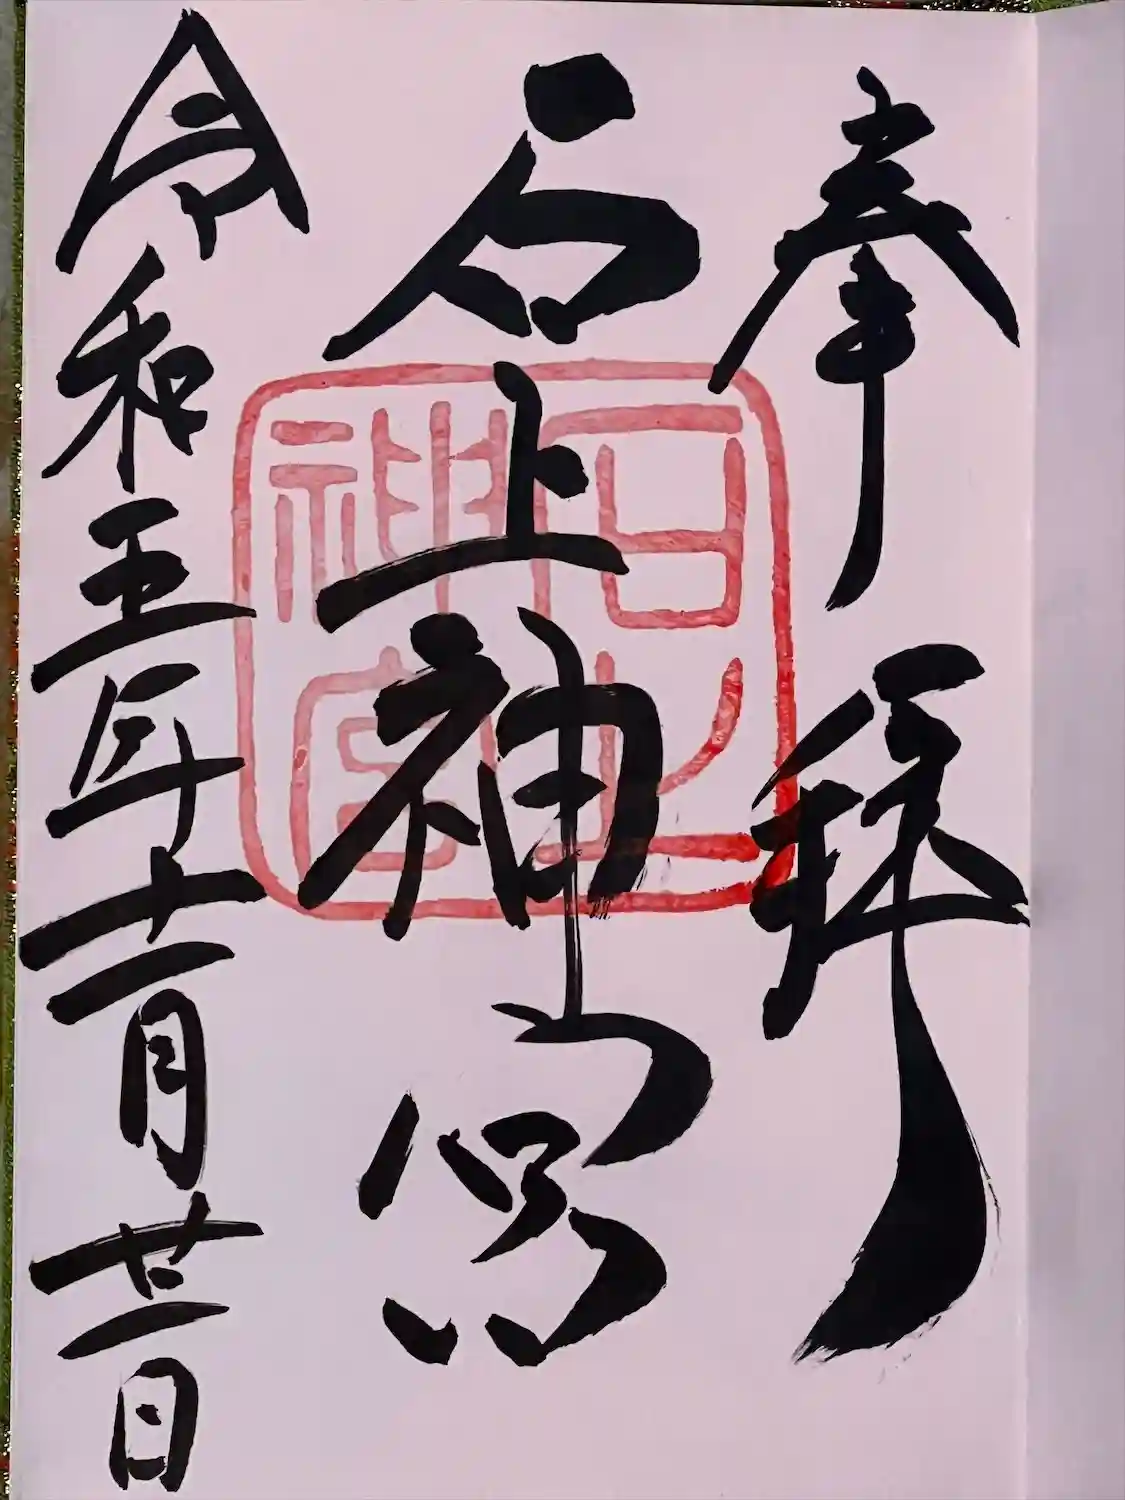 奉拝
石上神宮
令和五年十一月廿一日
石上
神宮